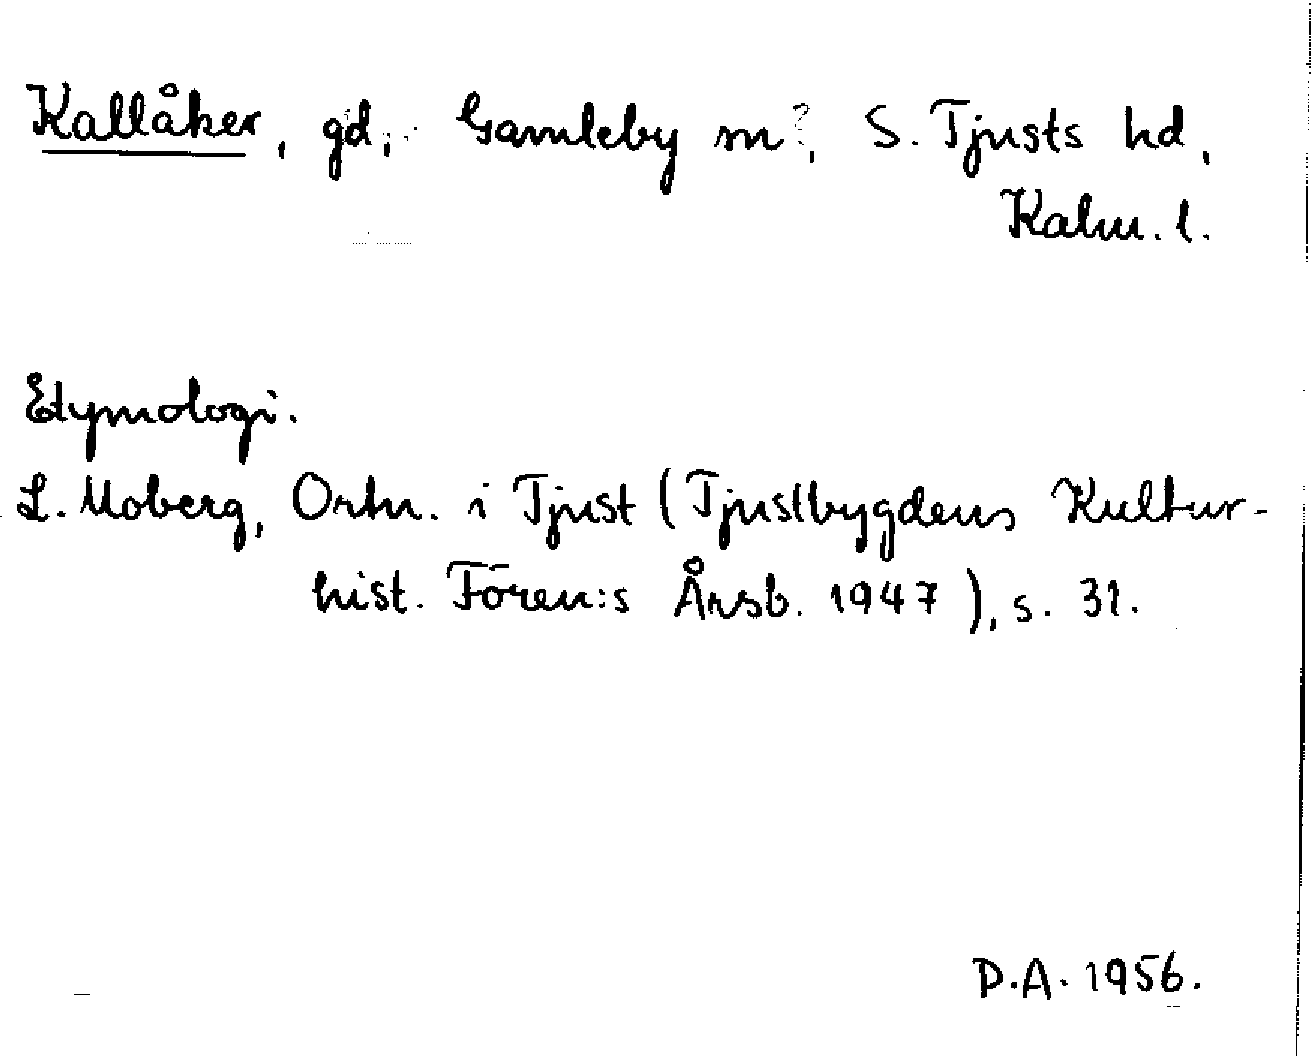 Kallåker, gd, Gamleby sn?, S. Tjusts hd,
Kalm. l.
Etymologi.
L. Moberg, Ortn. i Tjust (Tjustbygdens Kultur-
hist. Fören:s Årsb. 1947), s. 31.
D.A. 1956.